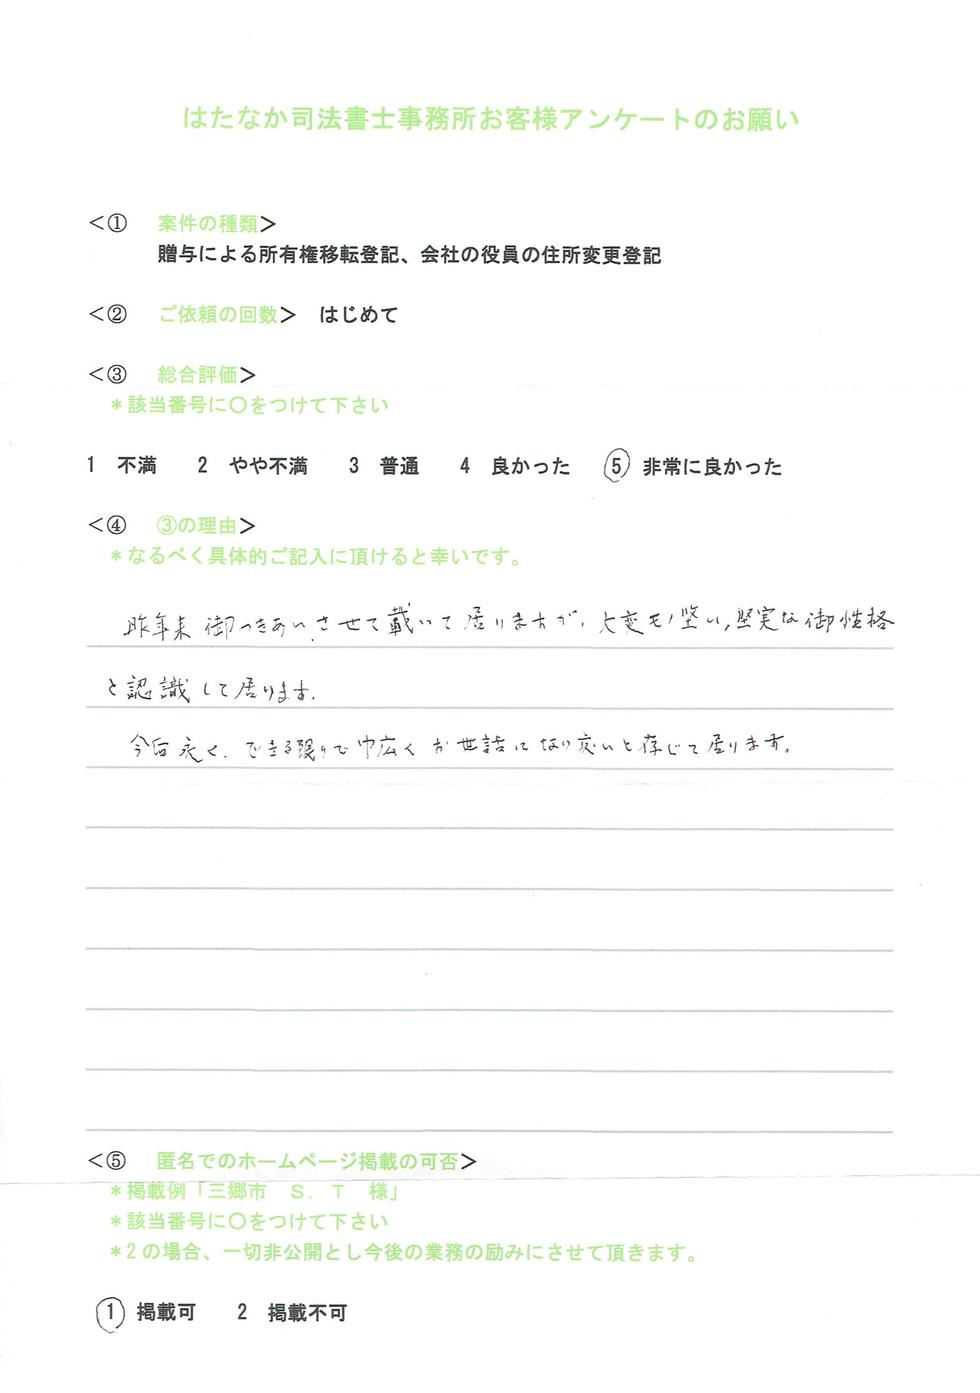 はたなか司法書士事務所お客様アンケートのお願い
<① 案件の種類>
贈与による所有権移転登記、会社の役員の住所変更登記
<② ご依頼の回数> はじめて
<③ 総合評価>
*該当番号に〇をつけて下さい
1 不満 2 やや不満 3 普通 4 良かった 5 非常に良かった
<④ ③の理由>
*なるべく具体的ご記入に頂けると幸いです。
昨年来御つきあいさせて載いて居りますが、大変モノ堅い、堅実な御性格
と認識して居ります。
今后永く、できる限りで巾広くお世話になり度いと存じて居ります。
<⑤ 匿名でのホームページ掲載の可否>
*掲載例「三郷市 S.T 様」
*該当番号に〇をつけて下さい
*2の場合、一切非公開とし今後の業務の励みにさせて頂きます。
1 掲載可 2 掲載不可